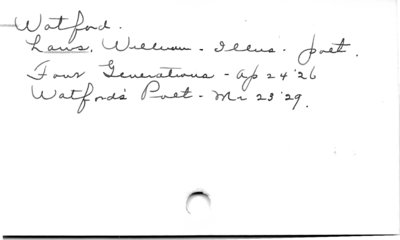 Watford.
Laws, William - Illus - poet.
Four Generations - Ap 24 '26
Watford's Poet - Mr 23 '29.